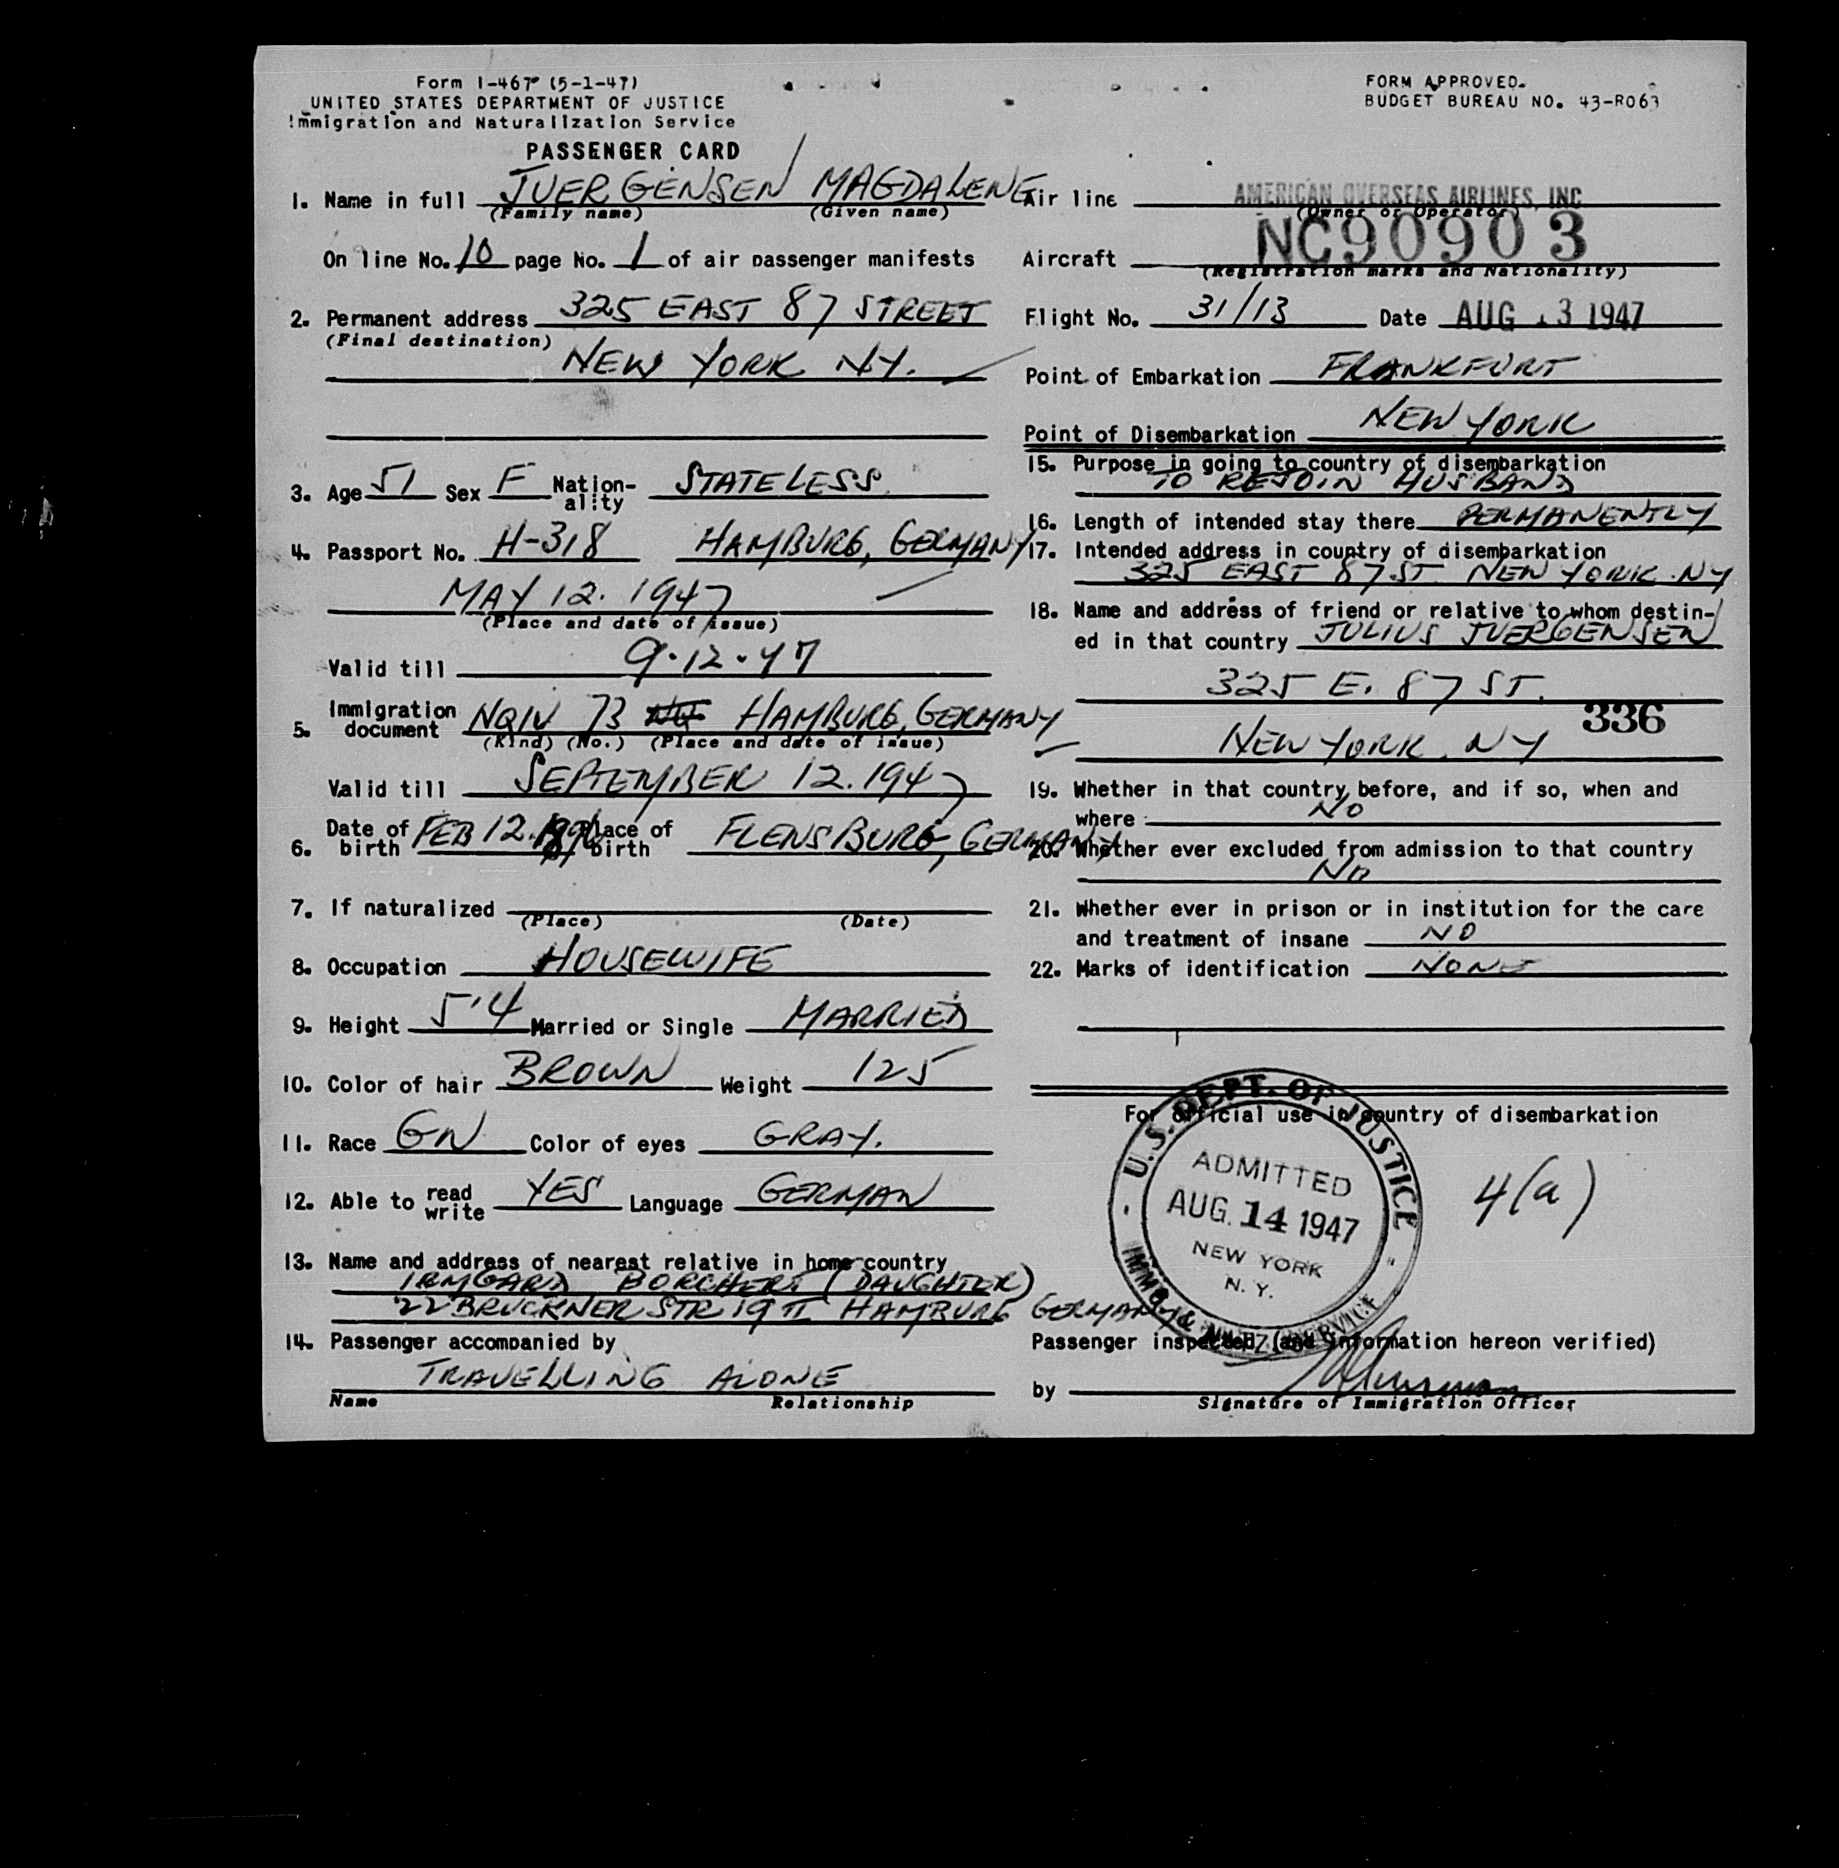 Form I-467 (5-1-47)
UNITED STATES DEPARTMENT OF JUSTICE
Immigration and Naturalization Service
PASSENGER CARD
FORM APPROVED.
BUDGET BUREAU NO. 43-R063
1. Name in full JUERGENSEN MAGDALENE
(Family name) (Given name)
On line No. 10 page No. 1 of air passenger manifests
2. Permanent address 325 EAST 87 STREET
(Final destination)
NEW YORK NY.
3. Age 51 Sex F Nation-ality STATELESS
4. Passport No. H-318 HAMBURG, GERMANY
MAY 12. 1947
(Place and date of issue)
Valid till 9-12-47
5. Immigration document NQIV 73 HAMBURG, GERMANY
(Kind) (No.) (Place and date of issue)
Valid till SEPTEMBER 12. 1947
6. Date of birth FEB 12. 1896 Place of birth FLENSBURG, GERMANY
7. If naturalized
(Place) (Date)
8. Occupation HOUSEWIFE
9. Height 5'4 Married or Single MARRIED
10. Color of hair BROWN Weight 125
11. Race GN Color of eyes GRAY.
12. Able to read write YES Language GERMAN
13. Name and address of nearest relative in home country
IRMGARD BORCHERT (DAUGHTER)
22 BRUCKNER STR 19 II HAMBURG GERMANY
14. Passenger accompanied by
TRAVELLING ALONE
Name Relationship
Air line AMERICAN OVERSEAS AIRLINES, INC
(Owner or Operator)
Aircraft NC90903
(Registration marks and Nationality)
Flight No. 31/13 Date AUG 13 1947
Point of Embarkation FRANKFURT
Point of Disembarkation NEW YORK
15. Purpose in going to country of disembarkation
TO REJOIN HUSBAND
16. Length of intended stay there PERMANENTLY
17. Intended address in country of disembarkation
325 EAST 87 ST. NEW YORK. NY
18. Name and address of friend or relative to whom destin-
ed in that country JULIUS JUERGENSEN
325 E. 87 ST.
336
NEW YORK. NY
19. Whether in that country before, and if so, when and
where NO
20. Whether ever excluded from admission to that country
NO
21. Whether ever in prison or in institution for the care
and treatment of insane NO
22. Marks of identification NONE
For official use in country of disembarkation
U.S. DEPT. OF JUSTICE
ADMITTED
AUG. 14 1947
NEW YORK
N. Y.
4(a)
Passenger inspected, (and information hereon verified)
by
Signature of Immigration Officer